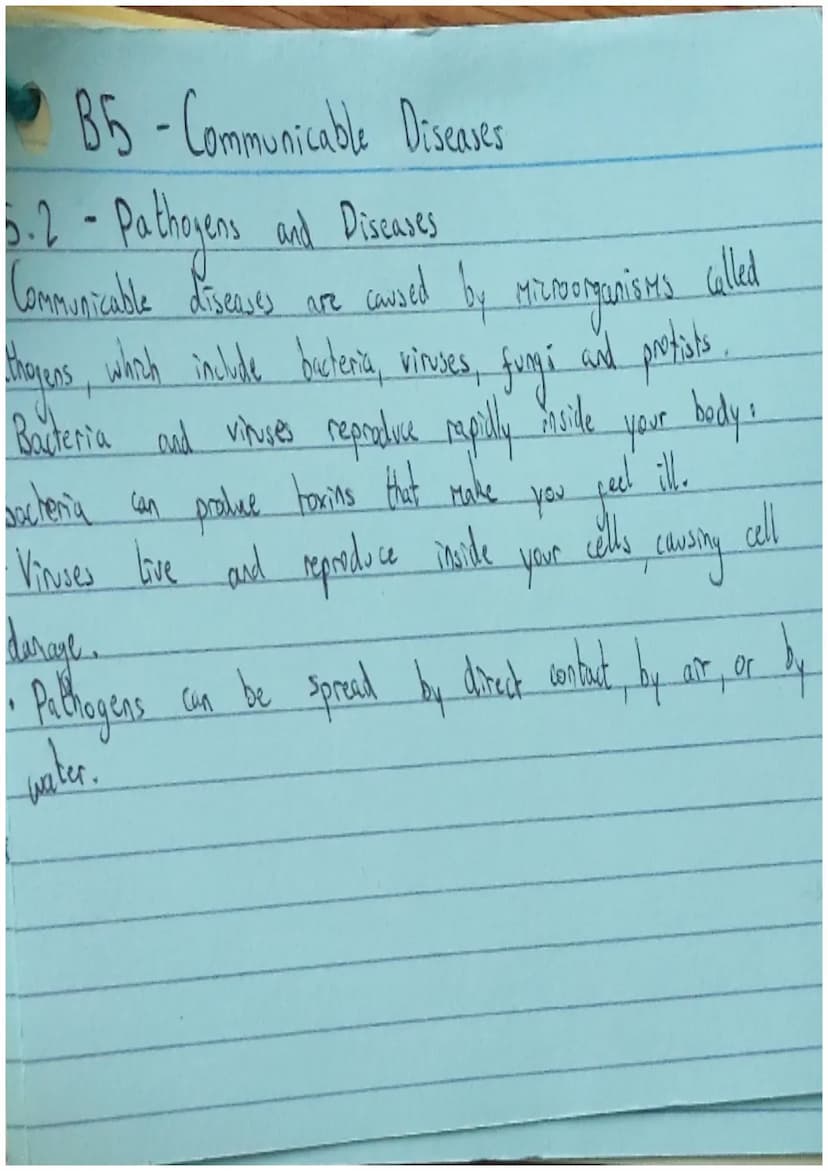 B5 - Communicable Diseases
5.2 - Pathogens and Diseases
Communicable diseases are caused by microorganisms called
thogens, which include bacteria, viruses, fungi and protists.
Bacteria and viruses reproduce rapidly inside your body.
bacteria can produce toxins that make you feel ill.
Viruses live and reproduce inside your cells, causing cell
damage.
• Pathogens can be spread by direct contact, by air, or by
water.